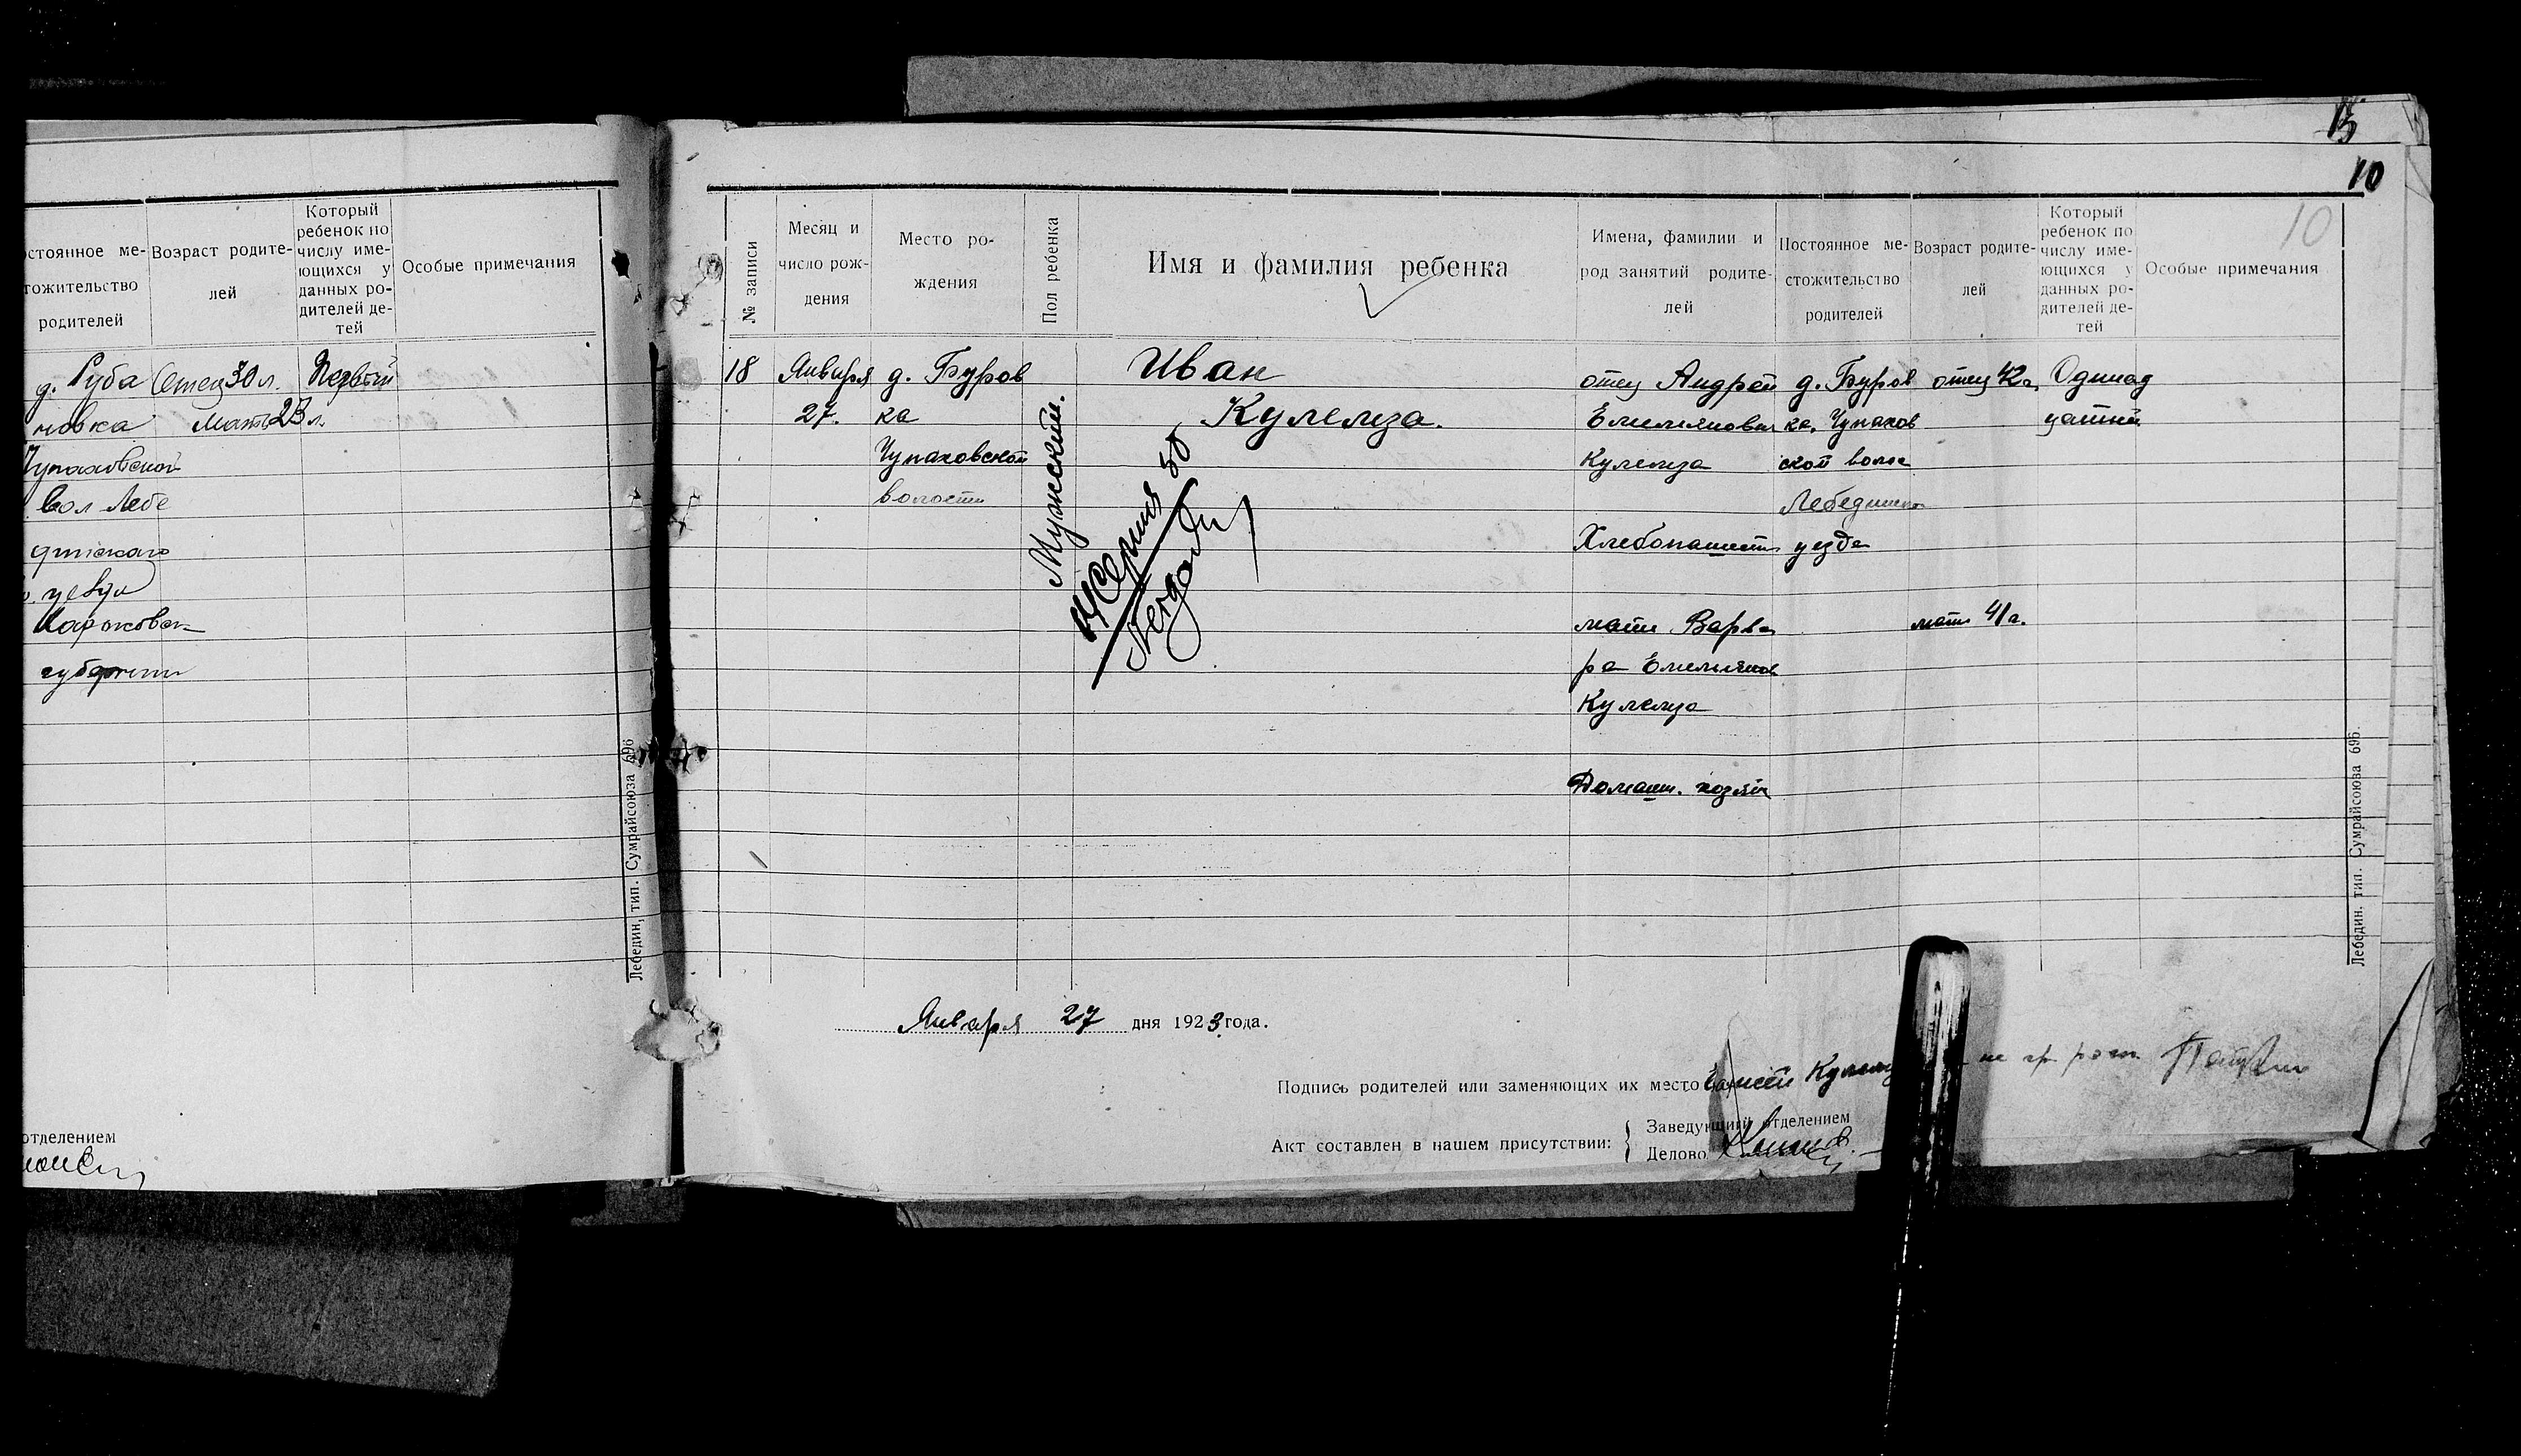 15
10
10
остоянное ме-
тожительство
родителей
Возраст родите-
лей
Который
ребенок по
числу име-
ющихся у
данных ро-
дителей де-
тей
Особые примечания
д. Руба
новка
Чупаховской
вол Лебе
динскаго
уезда
Харковск
губернии
Отец 30 л.
Мать 23 л.
Первый
Лебедин, тип. Сумрайсоюза 696
отделением
№ записи
Месяц и
число рож-
дения
Место ро-
ждения
Пол ребенка
Имя и фамилия ребенка
Имена, фамилии и
род занятий родите-
лей
Постоянное ме-
стожительство
родителей
Возраст родите-
лей
Который
ребенок по
числу име-
ющихся у
данных ро-
дителей де-
тей
Особые примечания
18
Января
27.
д. Буров
ка
Чупаховской
волости
Мужский.
Иван
Кулемза.
отец Андрей
Емельянович
Кулемза
Хлебопашест
мать Варва
ра Емельянов
Кулемза
Домашн. хозяй
д. Буров
ка, Чупахов
ской волос
Лебединско
уезда
отец 42 г.
мать 41 г.
Одинад
цатый
Января 27 дня 1923 года.
Подпись родителей или заменяющих их место
Акт составлен в нашем присутствии:
Заведующий отделением
Делово
Лебедин, тип. Сумрайсоюза 696.